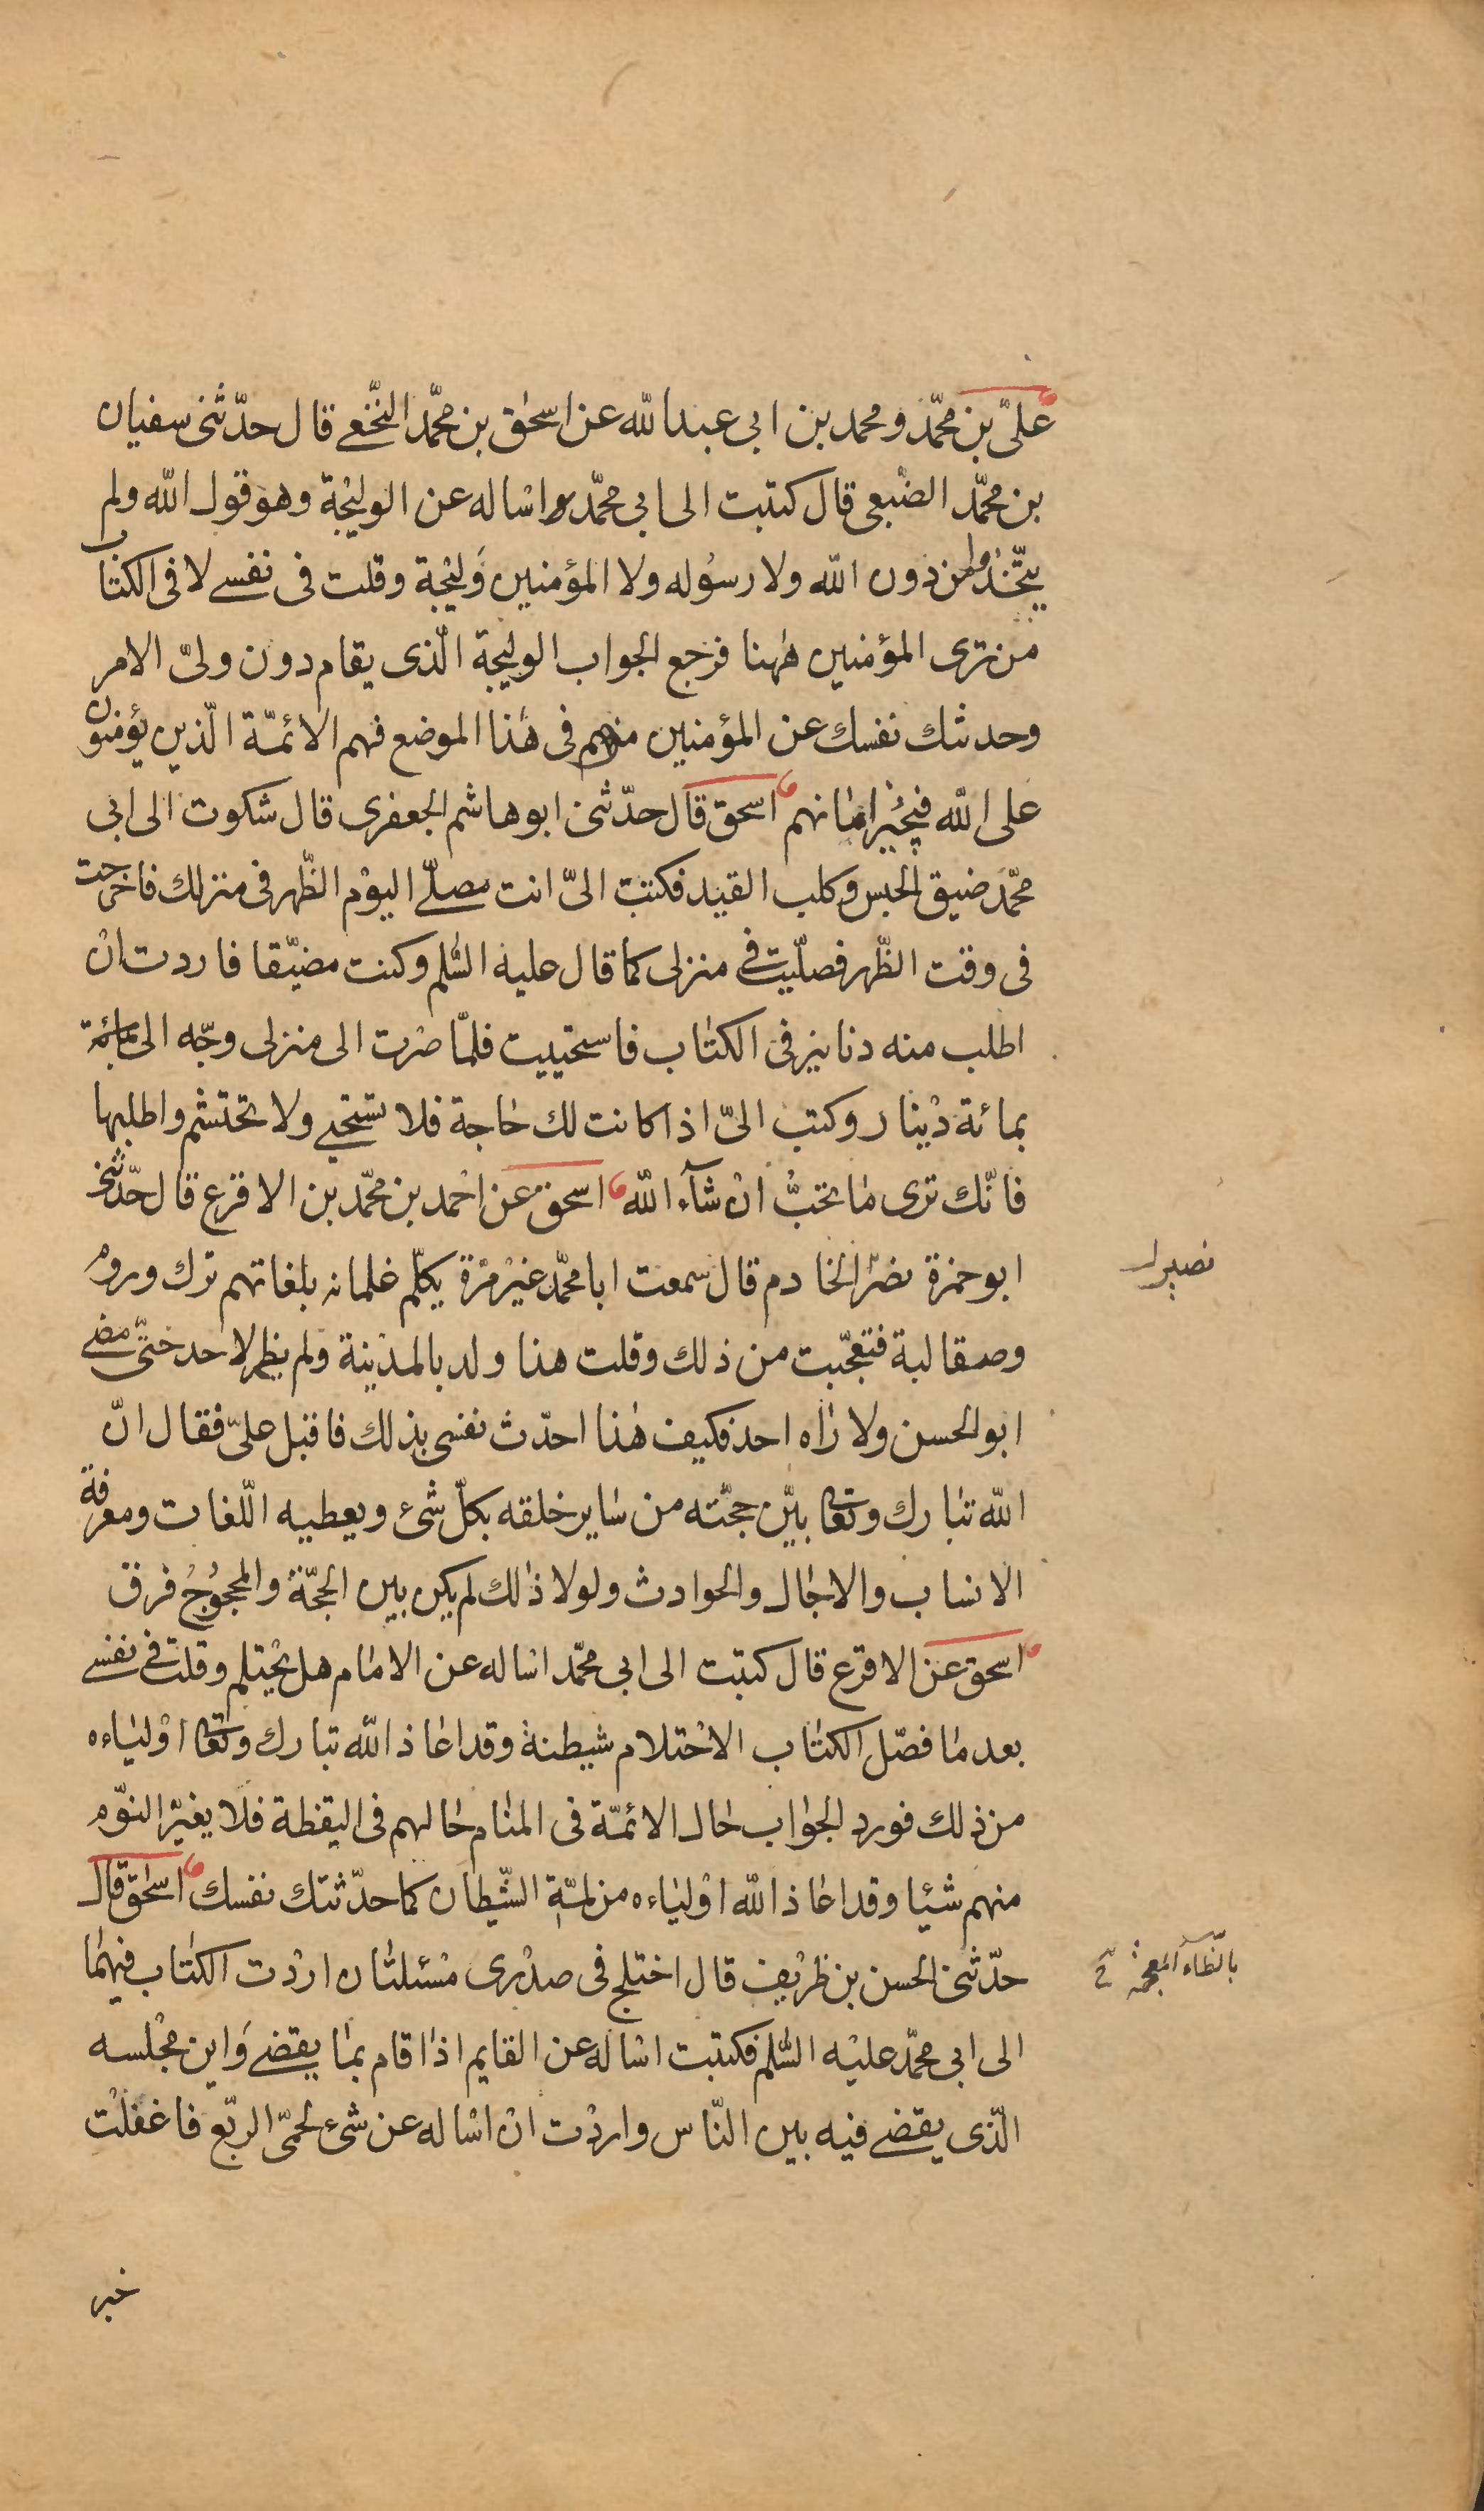 علىّ بن محمّد ومحمد بن ابى عبدالله عن اسحٰق بن محمّد النّخعى قال حدّثنى سفيان
بن محمّد الضّبعى قال كتبت الى ابى محمّد اساله عن الوليْجة وهو قول الله ولم
يتّخذوا من دون الله ولا رسُوله ولا المؤمنين وَليْجة وقلت فى نفسى لا فى الكتاب
من ترى المؤمنين هٰهنا فرجع الجواب الوليجة الّذى يقام دون ولىّ الامر
وحدثتك نفسك عن المؤمنين منهم فى هٰذا الموضع فهم الائمّة الّذين يؤمنون
على الله فيجُيْز امانهم اسحق قال حدّثنى ابوهاشم الجعفرى قال شكوت الى ابى
محّمد ضيق الحبس وكلب القيد فكتب الىّ انت مصلّى اليوْم الظّهر فى منزلك فاخرجت
فى وقت الظّهر فصلّيت فى منزلى كما قال عليه السّٰلم وكنت مضيّقا فاردت انْ
اطلب منه دنانيز فى الكتاب فاستحييت فلمّا صْرت الى منزلى وجّه الى
بمائة دْينار وكتب الىّ اذا كانت لك حٰاجة فلا تستحى ولا تحتشم واطلبها
فانّك ترى مٰا تحبّ انْ شآء الله اسحق عن احْمد بن محمّد بن الاقرع قال حدّثنى
ابوحمزة نصْر الخادم قال سمعت ابا محمّد غيْر مرّة يكلّم غلمانه بلغاتهم ترك وروم
نصير
وصقالبة فتعجّبت من ذلك وقلت هذا ولد بالمدْينة ولم يظهر لاحد حتّى مضى
ابوالحسن ولا رٰاه احد فكيف هٰذا احدّث نفسى بذلك فاقبل علىّ فقال انّ
الله تبارك وتعٰا بيّن حجّته من سٰاير خلقه بكلّ شئ ويعطيه الّلغات ومعرفة
الانساب والاجٰال والحوادث ولولا ذٰلك لم يكن بين الحجّة والمحجوُج فرق
اسحق عن الاقرع قال كتبت الى ابى محمّد اساله عن الامٰام هل يحْتلم وقلت فى نفسى
بعد مٰا فصّل الكتٰاب الاحْتلام شيطنة وقد اعٰاذ الله تبارك وتعٰا اوْلياءه
من ذلك فورد الجوٰاب حٰال الائمّة فى المنٰام حٰالهم فى اليقظة فلا يغيّر النوّم
منهم شيئا وقد اعٰاذ الله اوْليٰاءه من لمّة الشّيطان كما حدّثتك نفسك اسحٰق قال
حدّثنى الحسن بن ظرْيف قال اختلج فى صدْرى مسْئلتٰان اردْت الكتٰاب فيهمٰا
بالظّاء المعجمة
الى ابى محمّد عليْه السّٰلم فكتبت اسْاله عن القايم اذٰا قام بمٰا يقضى وَاين مجْلسه
الّذى يقضى فيه بين النّاس واردْت انْ اسْاله عن شئ لحمّى الربّع فاغفلْت
خبر